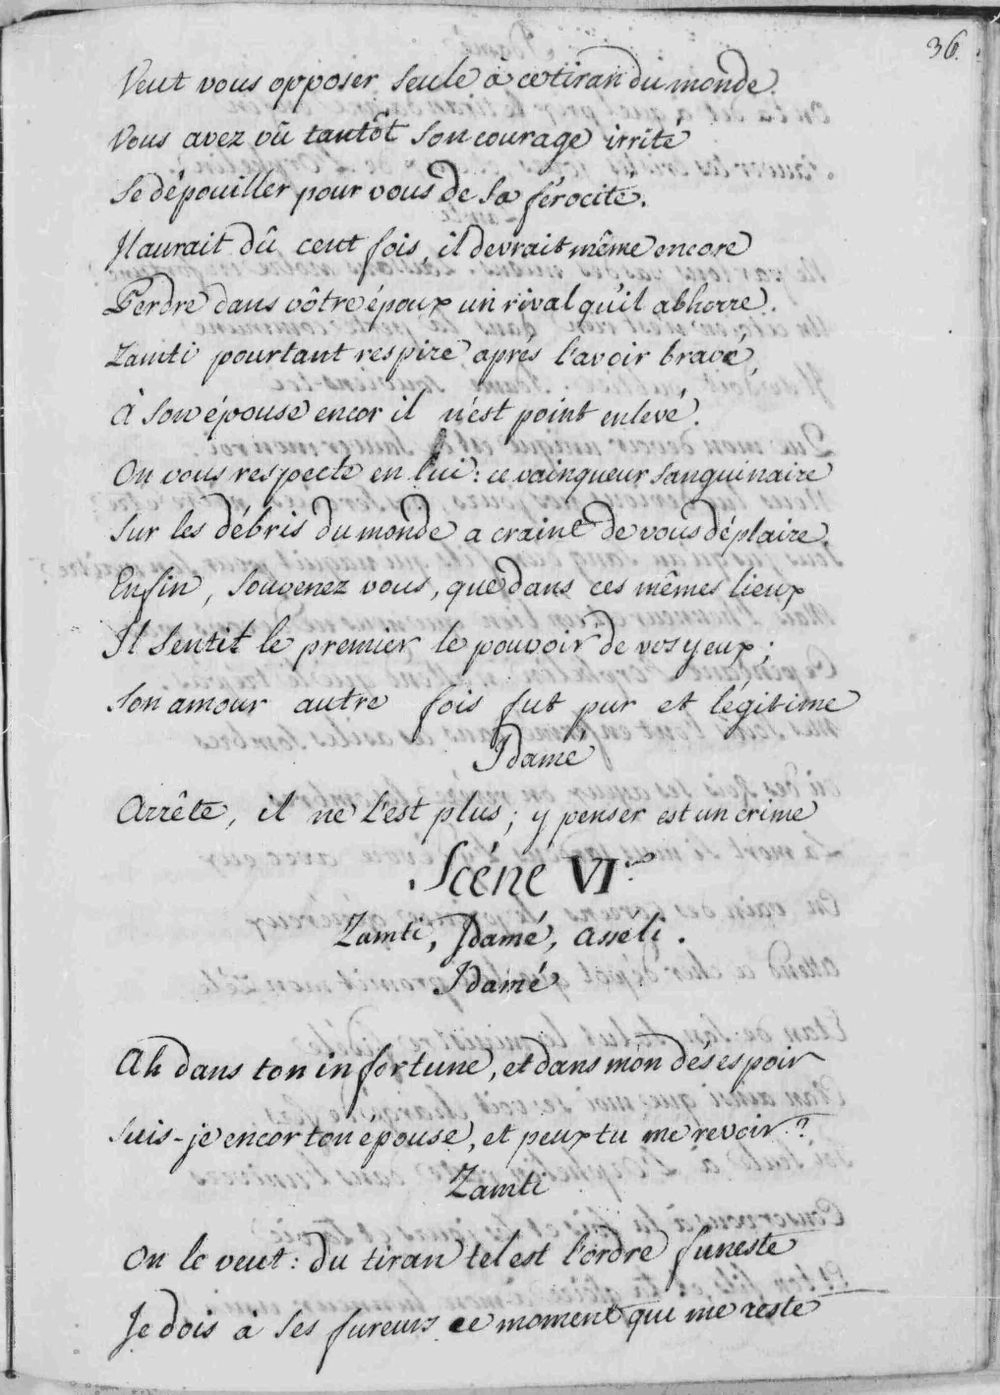 36.
Veut vous opposer seule à ce tiran du monde.
Vous avez vû tantôt son courage irrité
Se dépouiller pour vous de sa férocité.
Il aurait dû cent fois, il devrait même encore
Perdre dans vôtre époux un rival qu'il abhorre.
Zamti pourtant respire après l'avoir bravé,
à son épouse encor il n'est point enlevé.
On vous respecte en lui : ce vainqueur sanguinaire
Sur les débris du monde a craint de vous déplaire.
Enfin, souvenez vous, que dans ces mêmes lieux
Il sentit le premier le pouvoir de vos yeux ;
Son amour autre fois fut pur et légitime
Idamé
Arrête, il ne l'est plus ; y penser est un crime
Scéne VI.e
Zamti, Idamé, asséli.
Idamé
Ah dans ton infortune, et dans mon désespoir
Suis-je encor ton épouse, et peux tu me revoir ?
Zamti
On le veut : du tiran tel est l'ordre funeste
Je dois à ses fureurs ce moment qui me reste